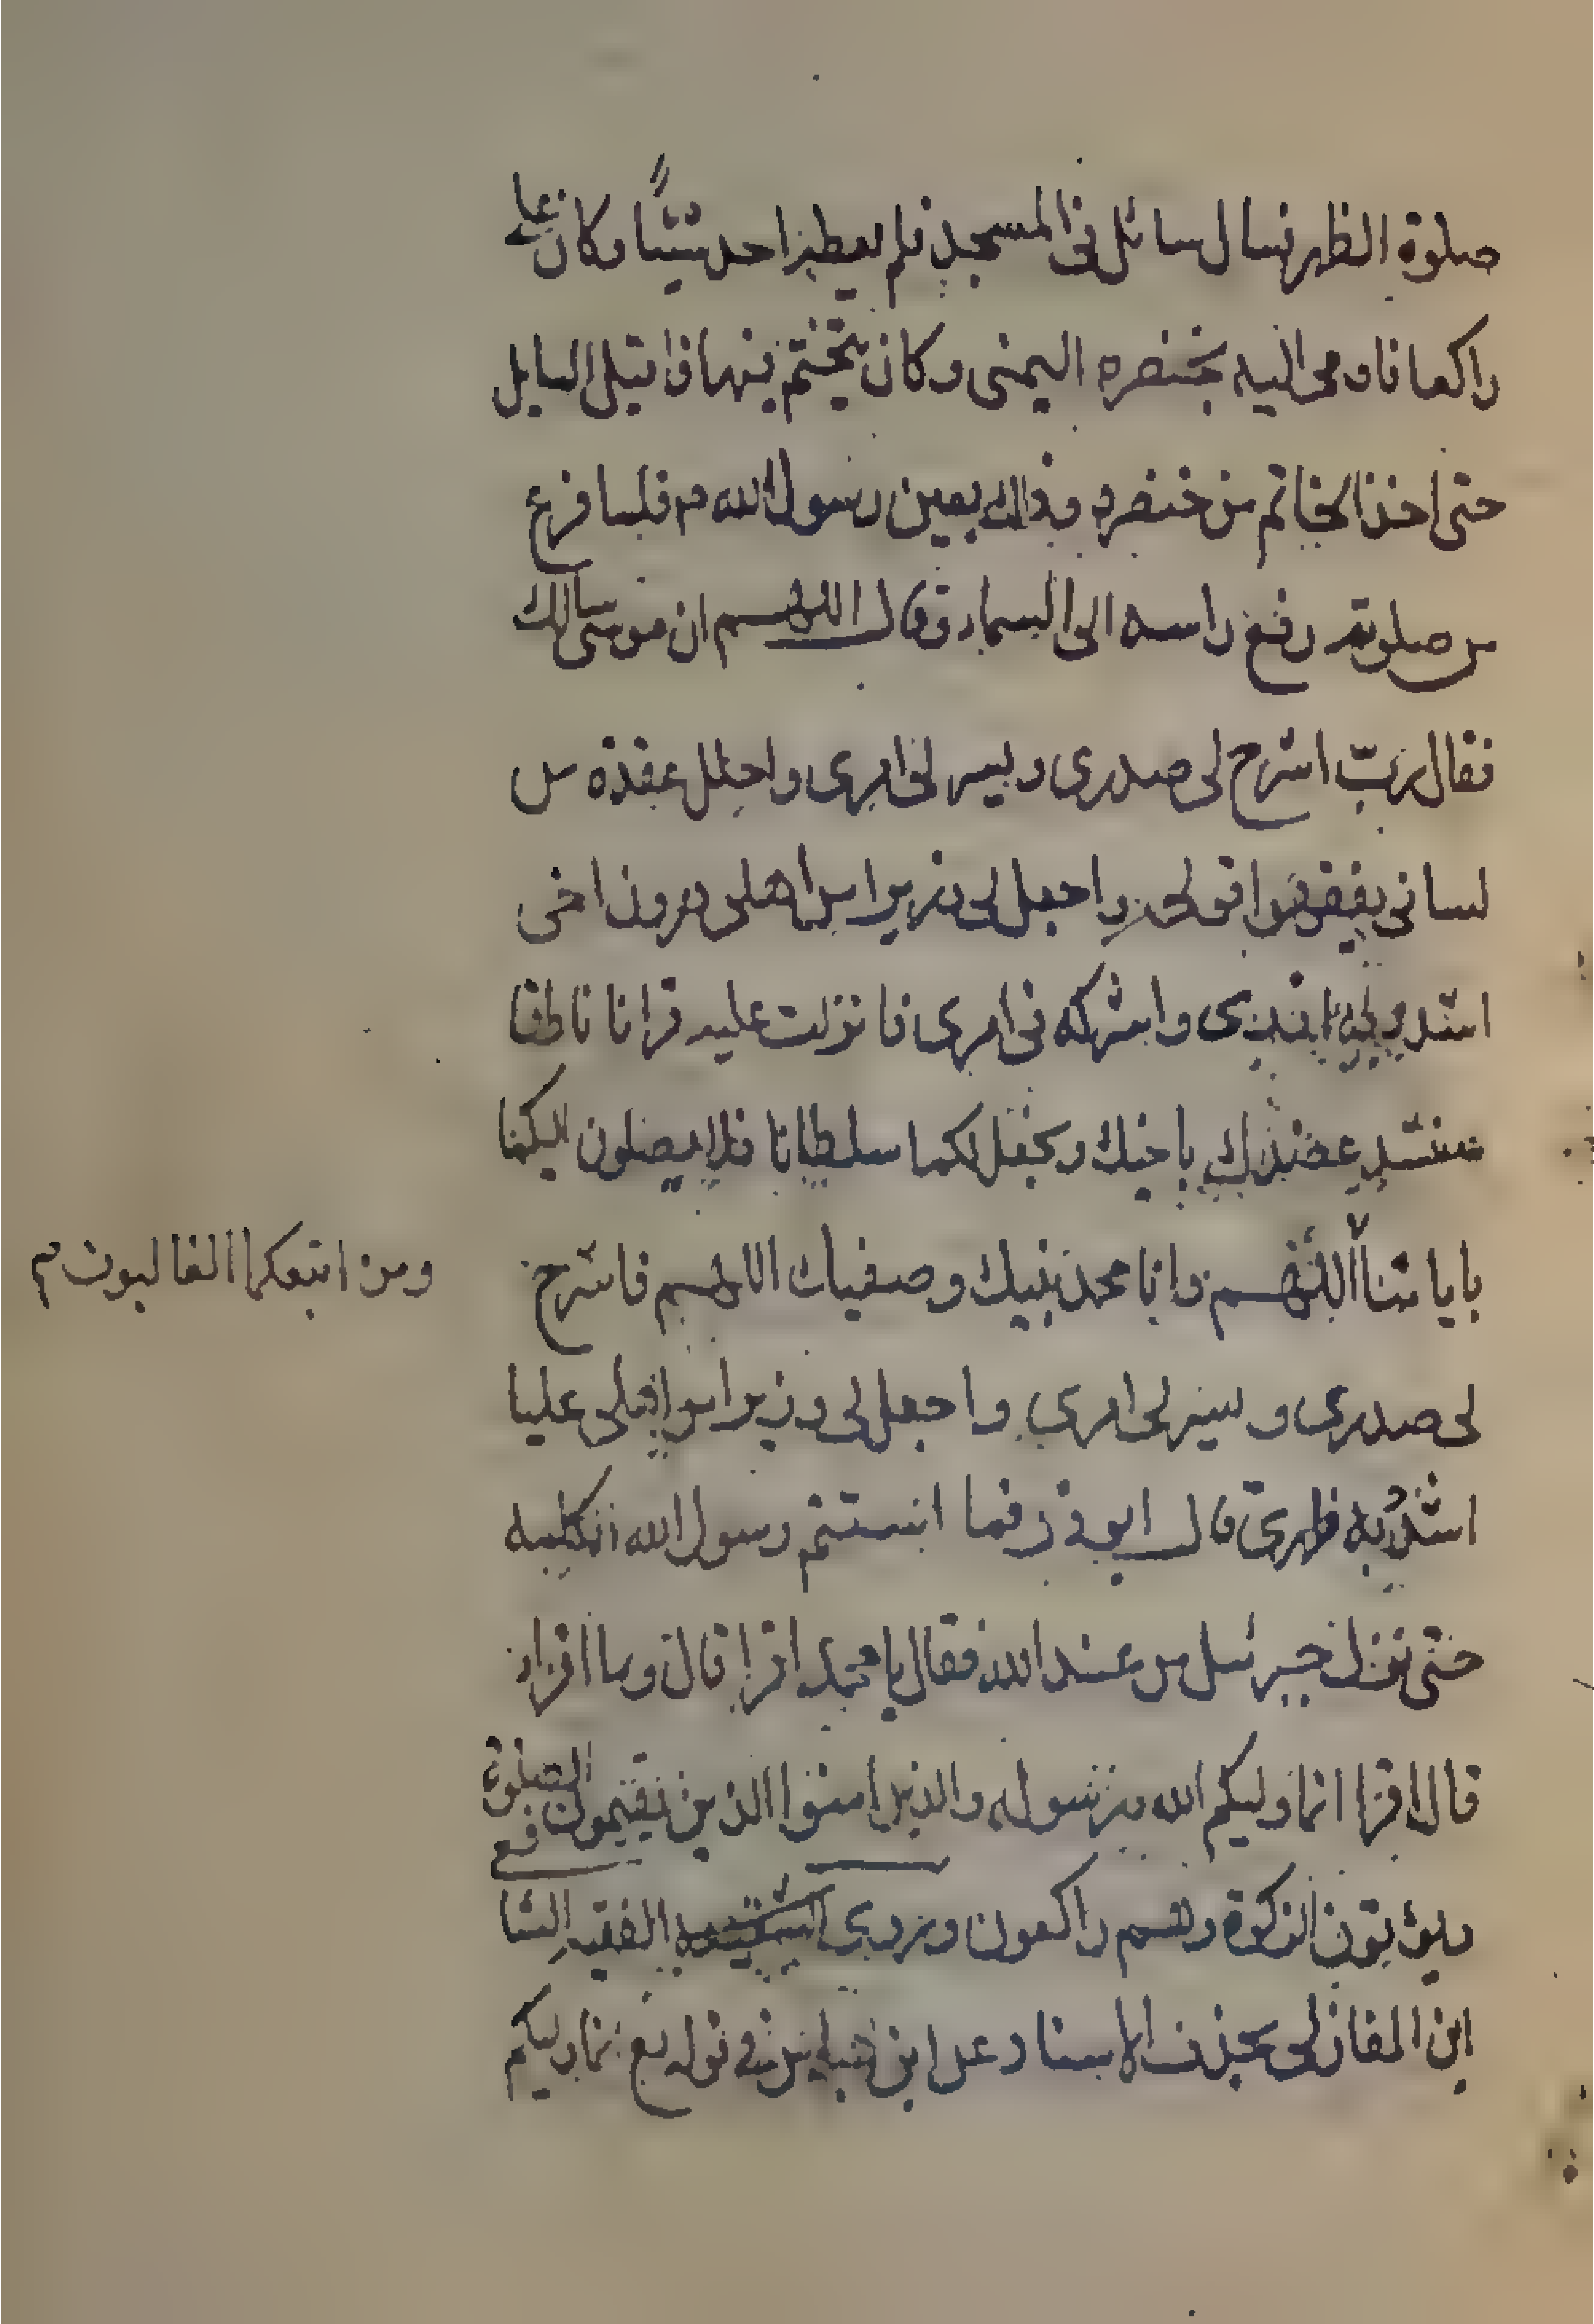 صلوة الظهر فسال سائل فى المسجد فلم يعطه احد شيئًا وكان على
راكعا فاومى اليه بخنصره اليمنى وكان يتختم فيها فاقبل السايل
حتى اخذ الخاتم من خنصره وذلك بعين رسول الله م فلما فرغ
من صلوته رفع راسه الى السماء وقال اللهم ان موسى سالك
فقال رب اشرح لى صدرى ويسر لى امرى واحلل عقدة من
لسانى يفقهوا قولى واجعل لى وزيرا من اهلى هرون اخى
اشدد به ازرى واشركه فى امرى فانزلت عليه قرانا ناطقا
سنشد عضدك باخيك ونجعل لكما سلطانا فلا يصلون اليكما
باياتنا اللهم وانا محمد نبيك وصفيك اللهم فاشرح
ومن اتبعكما الغالبون م
لى صدرى ويسر لى امرى واجعل لى وزيرا من اهلى عليا
اشدد به ظهرى قال ابو ذر فما استتم رسول الله الكلمه
حتى نزل جبرئيل من عند الله فقال يا محمد اقرا قال وما اقرا
قال اقرا انما وليكم الله ورسوله والذين امنوا الذين يقيمون الصلوة
ويؤتون الزكوة وهم راكعون وروى الفقيه الشا
فعى
ابن المغازلى بحذف الاسناد عن ابن عباس فى قوله تع انما وليكم